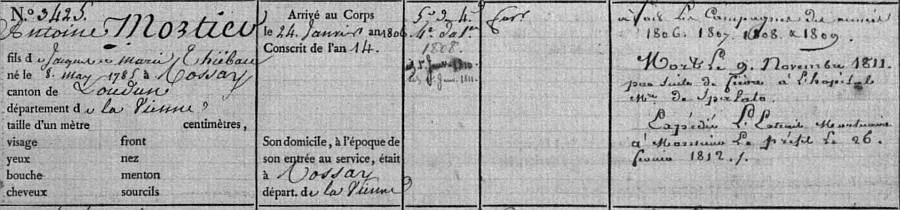 N.º 3425.
Antoine Mortier
fils d e Jacques et marie Thiébau
né le 8. may 1785 à Mossay
canton de Loudun
département d e la Vienne
taille d'un mètre centimètres,
visage front
yeux nez
bouche menton
cheveux sourcils
Arrivé au Corps
le 24. Janvier an 1806
Conscrit de l'an 14.
Son domicile, à l'époque de
son entrée au service, était
à Mossay
départ. d e la Vienne
5.e d. 4.e
4.e du 1.er
1808.
1811.
à fait les Campagnes des années
1806. 1807. 1808. & 1809.
Mort le 9. Novembre 1811.
par suite de fièvre à l'hopital
M.re de Spalato.
Expédié L'Extrait Mortuaire
à Monsieur le préfet le 26
1812.